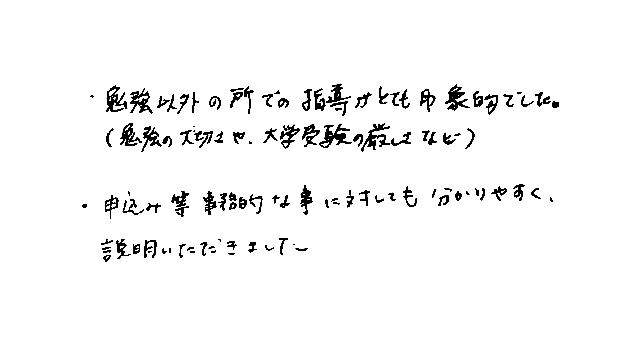 ・勉強以外の所での指導がとても印象的でした。
（勉強の大切さや、大学受験の厳しさなど）
・申込み等事務的な事に対しても分かりやすく、
説明いただきました